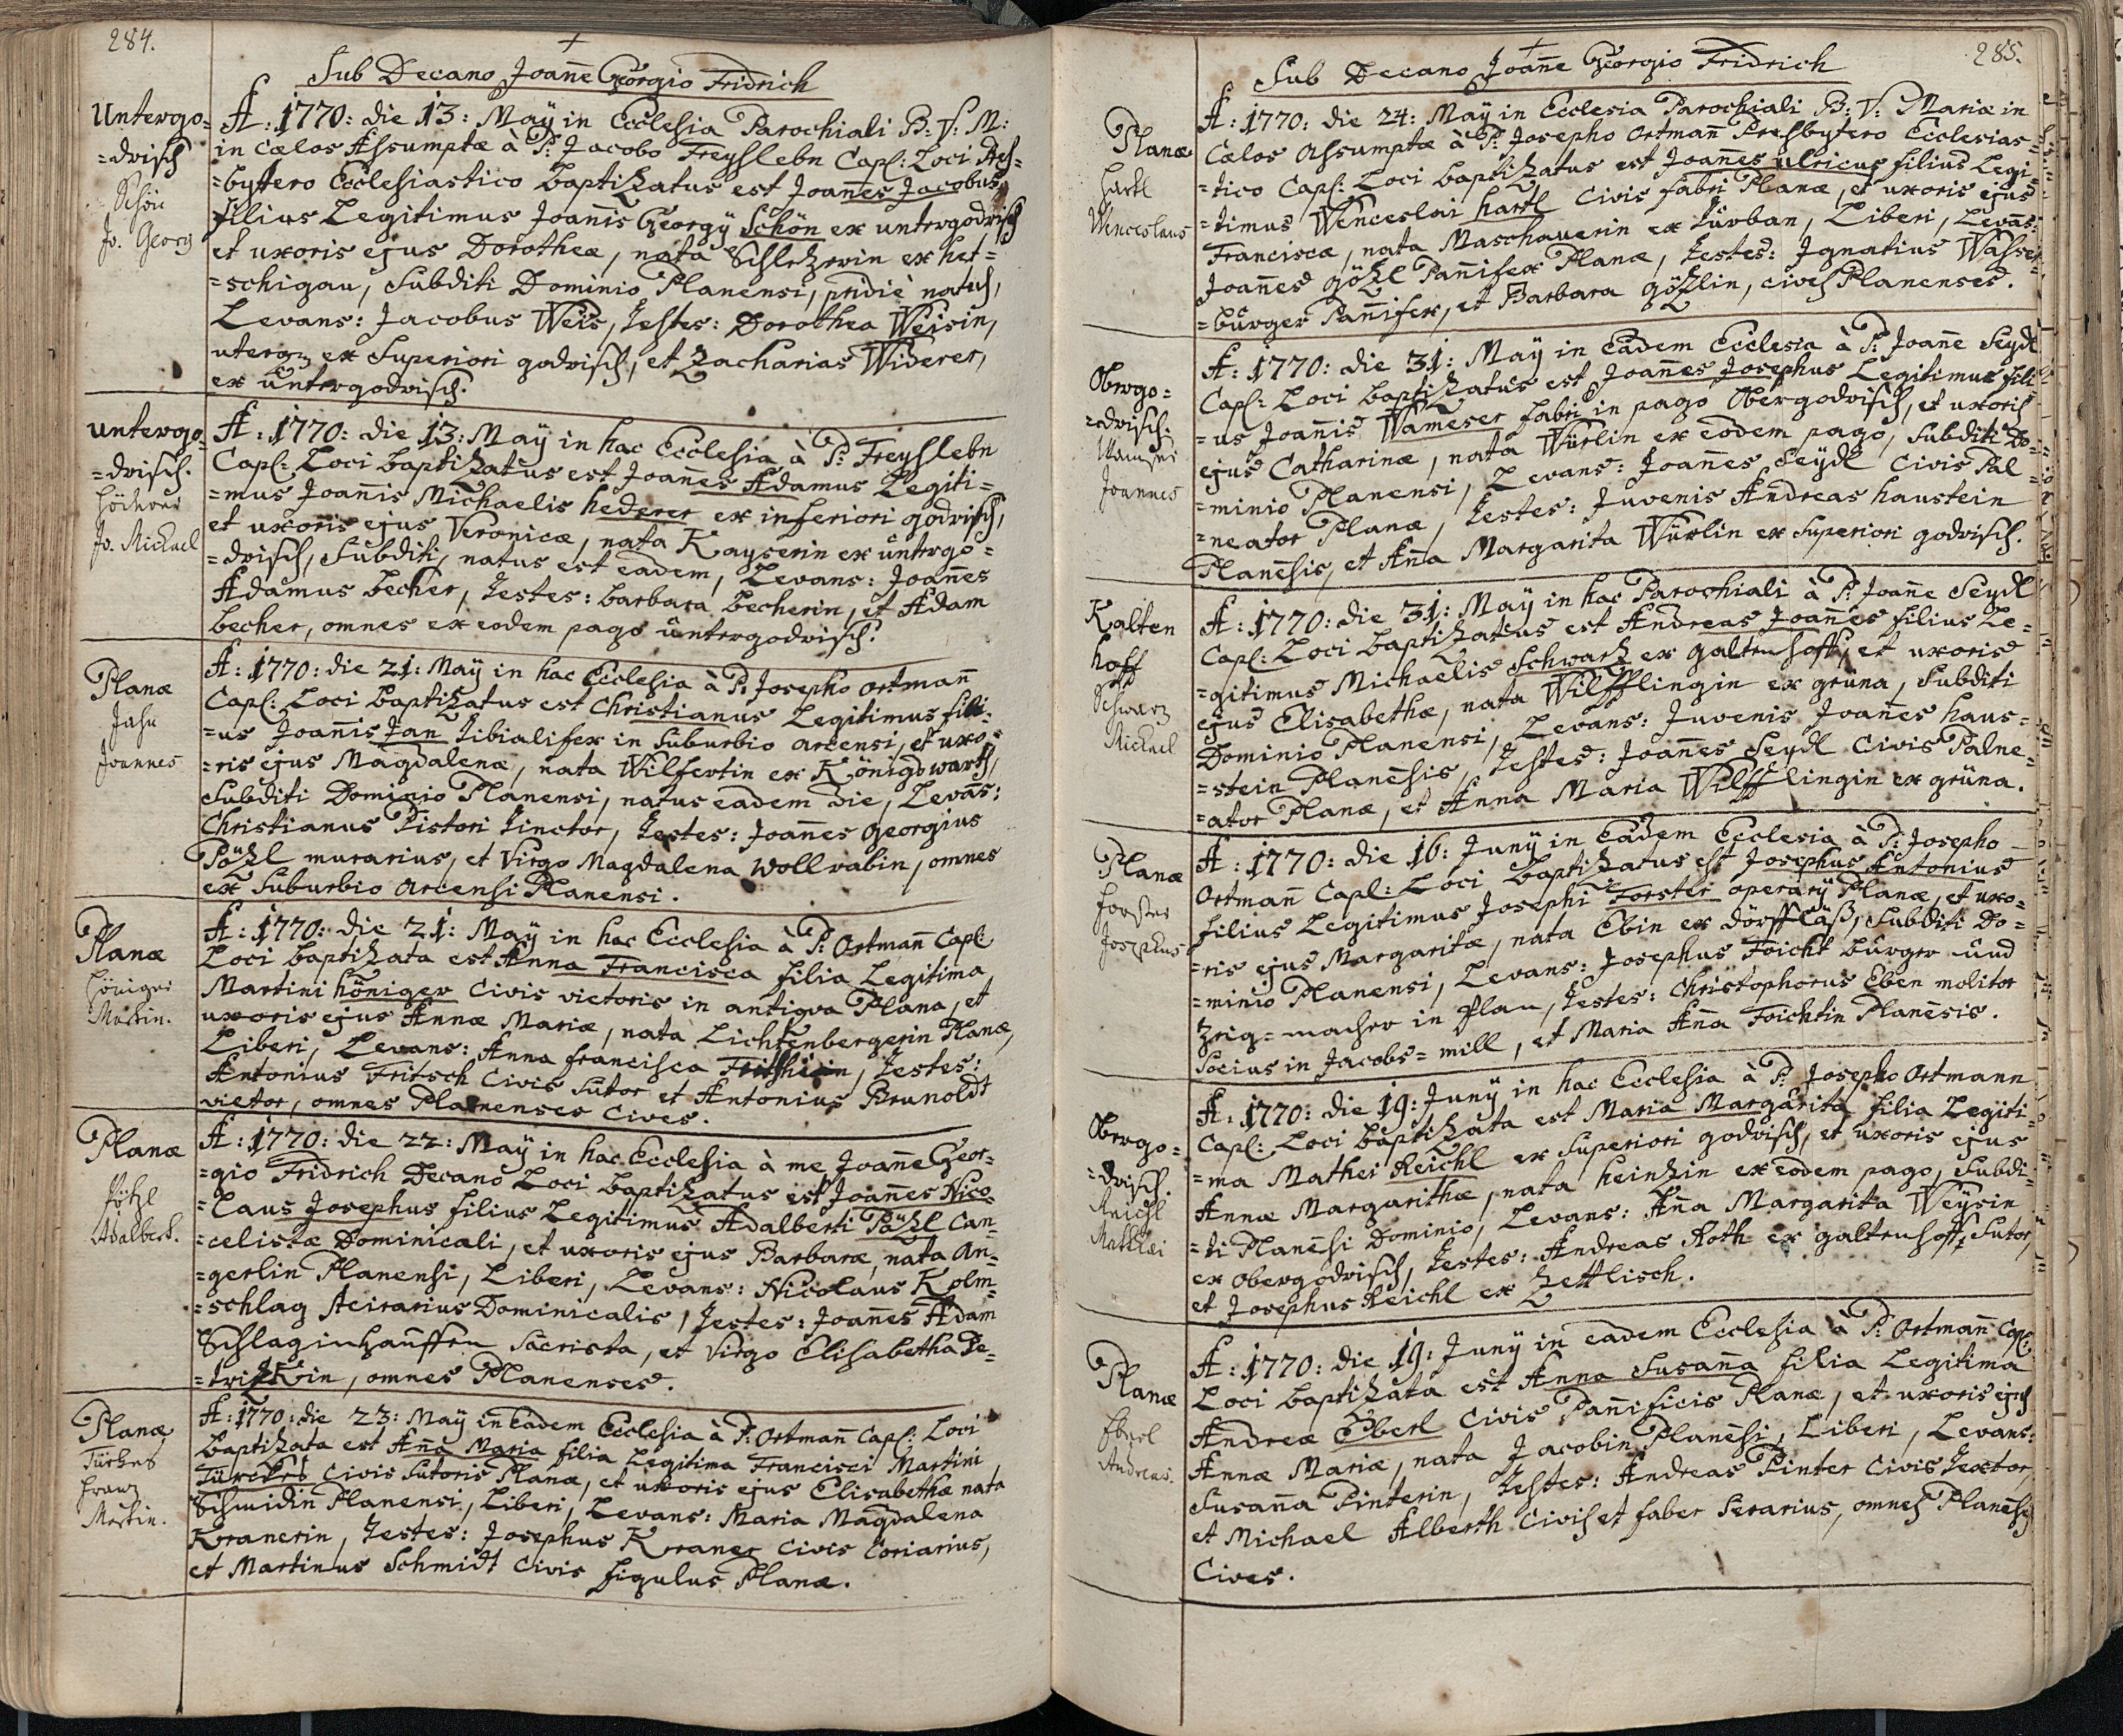 284.
Sub Decano Joan̄e Georgio Fridrich
Untergo=
=drisch
Schön
Jo. Georg
A: 1770: die 13: Maÿ in Ecclesia Parochiali B: V: M:
in Cælos Assumptæ à P: Jacobo Freyslebn Capl: Loci Pres=
=bytero Ecclesiastico baptizatus est Joan̄es Jacobus
filius Legitimus Joan̄is Georgÿ Schön ex untergodrisch
et uxoris ejus Dorotheæ, nata Schlezerin ex het=
=schigau, Subditi Dominio Planensi, pridiè natus,
Levans: Jacobus Weis, Testes: Dorothea Weisin,
uterq; ex Superiori godrisch, et Zacharias Widerer,
ex untergodrisch.
untergo=
=drisch.
Jo. Michael
A: 1770: die 13: Maÿ in hac Ecclesia à P: Freyslebn
Capl: Loci baptizatus est Joan̄es Adamus Legiti=
=mus Joan̄is Michaelis hederer ex inferiori godrisch,
et uxoris ejus Veronicæ, nata Kayserin ex untergo=
=drisch, Subditi, natus est eadem, Levans: Joan̄es
Adamus becher, Testes: barbara becherin, et Adam
becher, omnes ex eodem pago untergodrisch.
Planæ
Jahn
Joannes
A: 1770: die 21: Maÿ in hac Ecclesia à P: Josepho Ortman̄
Capl: Loci baptizatus est Christianus Legitimus fili=
=us Joan̄is Jan tibialifex in Suburbio arcensi, et uxo=
=ris ejus Magdalenæ, nata Wilfertin ex Königswarth,
Subditi Dominio Planensi, natus eadem die, Levans:
Christianus Pistori tinctor, Testes: Joan̄es georgius
Pözl murarius, et Virgo Magdalena wollrabin, omnes
ex Suburbio arcensi Planensi.
Planæ
höniger
Martin.
A: 1770: die 21: Maÿ in hac Ecclesia à P: Ortman̄ Capl:
Loci baptizata est Anna Francisca filia Legitima
Martini höniger Civis victoris in antiqva Plana, et
uxoris ejus Annæ Mariæ, nata Lichtenbergerin Planæ,
Liberi, Levans: Anna francisca, Testes:
Antonius Fritsch Civis Sutor et Antonius Brunoldt
victor, omnes Planenses Cives.
Planæ
Pötzl
Adalbert.
A: 1770: die 22: Maÿ in hac Ecclesia à me Joan̄e Geor=
=gio Fridrich Decano Loci baptizatus est Joan̄es Nico=
=laus Josephus filius Legitimus Adalberti Pözl Can=
=celistæ Dominicali, et uxoris ejus Barbaræ, nata An=
=gerlin Planensi, Liberi, Levans: Nicolaus Kolm=
=schlag Dominicalis, Testes: Joan̄es Adam
Schlaginhauffen Sacrista, et Virgo Elisabetha Pe=
omnes Planenses.
Planæ
Türckes
Franz
Martin.
A: 1770: die 23: Maÿ in Eadem Ecclesia à P: Ortman̄ Capl: Loci
baptizata est An̄a Maria filia Legitima Francisci Martini
Türckes Civis Sutoris Planæ, et uxoris ejus Elisabethæ nata
Schmidin Planensi, Liberi, Levans: Maria Magdalena
Kranerin, Testes: Josephus Kraner Civis Coriarius,
et Martinus Schmidt Civis figulus Planæ.
285.
Sub Decano Joan̄e Georgio Fridrich
Planæ
Hartl
Wenceslaus
A: 1770: die 24: Maÿ in Ecclesia Parochiali B: V: Mariæ in
Cælos Assumptæ à P: Josepho Ortman̄ Presbytero Ecclesias=
=tico Capl: Loci baptizatus est Joan̄es ulricus filius Legi=
=timus Wenceslai hartl Civis fabri Planæ, et uxoris ejus
Franciscæ, nata Maschauerin ex Turban, Liberi, Levans:
Joan̄es gözl Pan̄ifex Planæ, Testes: Ignatius Wasser
=burger Pan̄ifex, et Barbara gözlin, cives Planenses.
Obergo=
=drisch.
Joannes
A: 1770: die 31: Maÿ in Eadem Ecclesia à P: Joan̄e Seydl
Capl: Loci baptizatus est Joan̄es Josephus Legitimus fili
=us Joan̄is Wameser fabri in pago Obergodrisch, et uxoris
ejus Catharinæ, nata Würlin ex eodem pago, Subditi Do=
=minio Planensi, Levans: Joan̄es Seydl Civis Pal=
=neator Planæ, Testes: Juvenis Andreas haustein
Planēsis, et An̄a Margarita Würlin ex Superiori godrisch.
Kalten
hoff
Schwarz
Michael
A: 1770: die 31: Maÿ in hac Parochiali à P: Joan̄e Seydl
Capl: Loci baptizatus est Andreas Joan̄es filius Le=
=gitimus Michaelis Schwarz ex galtenhoff, et uxoris
ejus Elisabethæ, nata Wilfflingin ex grüna, Subditi
Dominio Planensi, Levans: Juvenis Joan̄es haus=
=stein Planēsis, Testes: Joan̄es Seydl Civis Palne=
=ator Planæ, et Anna Maria Wilfflingin ex grüna.
Planæ
Forster
Josephus
A: 1770: die 16: Junÿ in Eadem Ecclesia à P: Josepho
Ortman̄ Capl: Loci baptizatus est Josephus Antonius
filius Legitimus Josephi Forster operarÿ Planæ, et uxo=
=ris ejus Margaritæ, nata Ebin ex dörffläß, Subditi Do=
=minio Planensi, Levans: Josephus Foicht burger und
Zeig=macher in Plan, Testes: Christophorus Eben molitor
Socius in Jacobs=mill, et Maria An̄a Foichtin Planēsis.
Obergo=
=drisch.
Reichl
Mathæi
A: 1770: die 19: Junÿ in hac Ecclesia à P: Josepho Ortmann
Capl: Loci baptizata est Maria Margarita filia Legiti=
=ma Mathei Reichl ex Superiori godrisch, et uxoris ejus
Annæ Margarithæ, nata heinzin ex eodem pago, Subdi=
=ti Planēsi Dominio, Levans: An̄a Margarita Weÿsin
ex obergodrisch, Testes: Andreas Roth ex galtenhoff, Sutor,
et Josephus Reichl ex Zettlisch.
Planæ
Eberl
Andreas.
A: 1770: die 19: Junÿ in eadem Ecclesia à P: Ortman̄ Capl:
Loci baptizata est Anna Susan̄a filia Legitima
Andreæ Eberl Civis Pan̄ificis Planæ, et uxoris ejus
Annæ Mariæ, nata Jacobin Planēsi, Liberi, Levans:
Susan̄a Pinterin, Testes: Andreas Pinter Civis Textor,
et Michael Alberth Civis et faber Serarius, omnes Planēses
Cives.